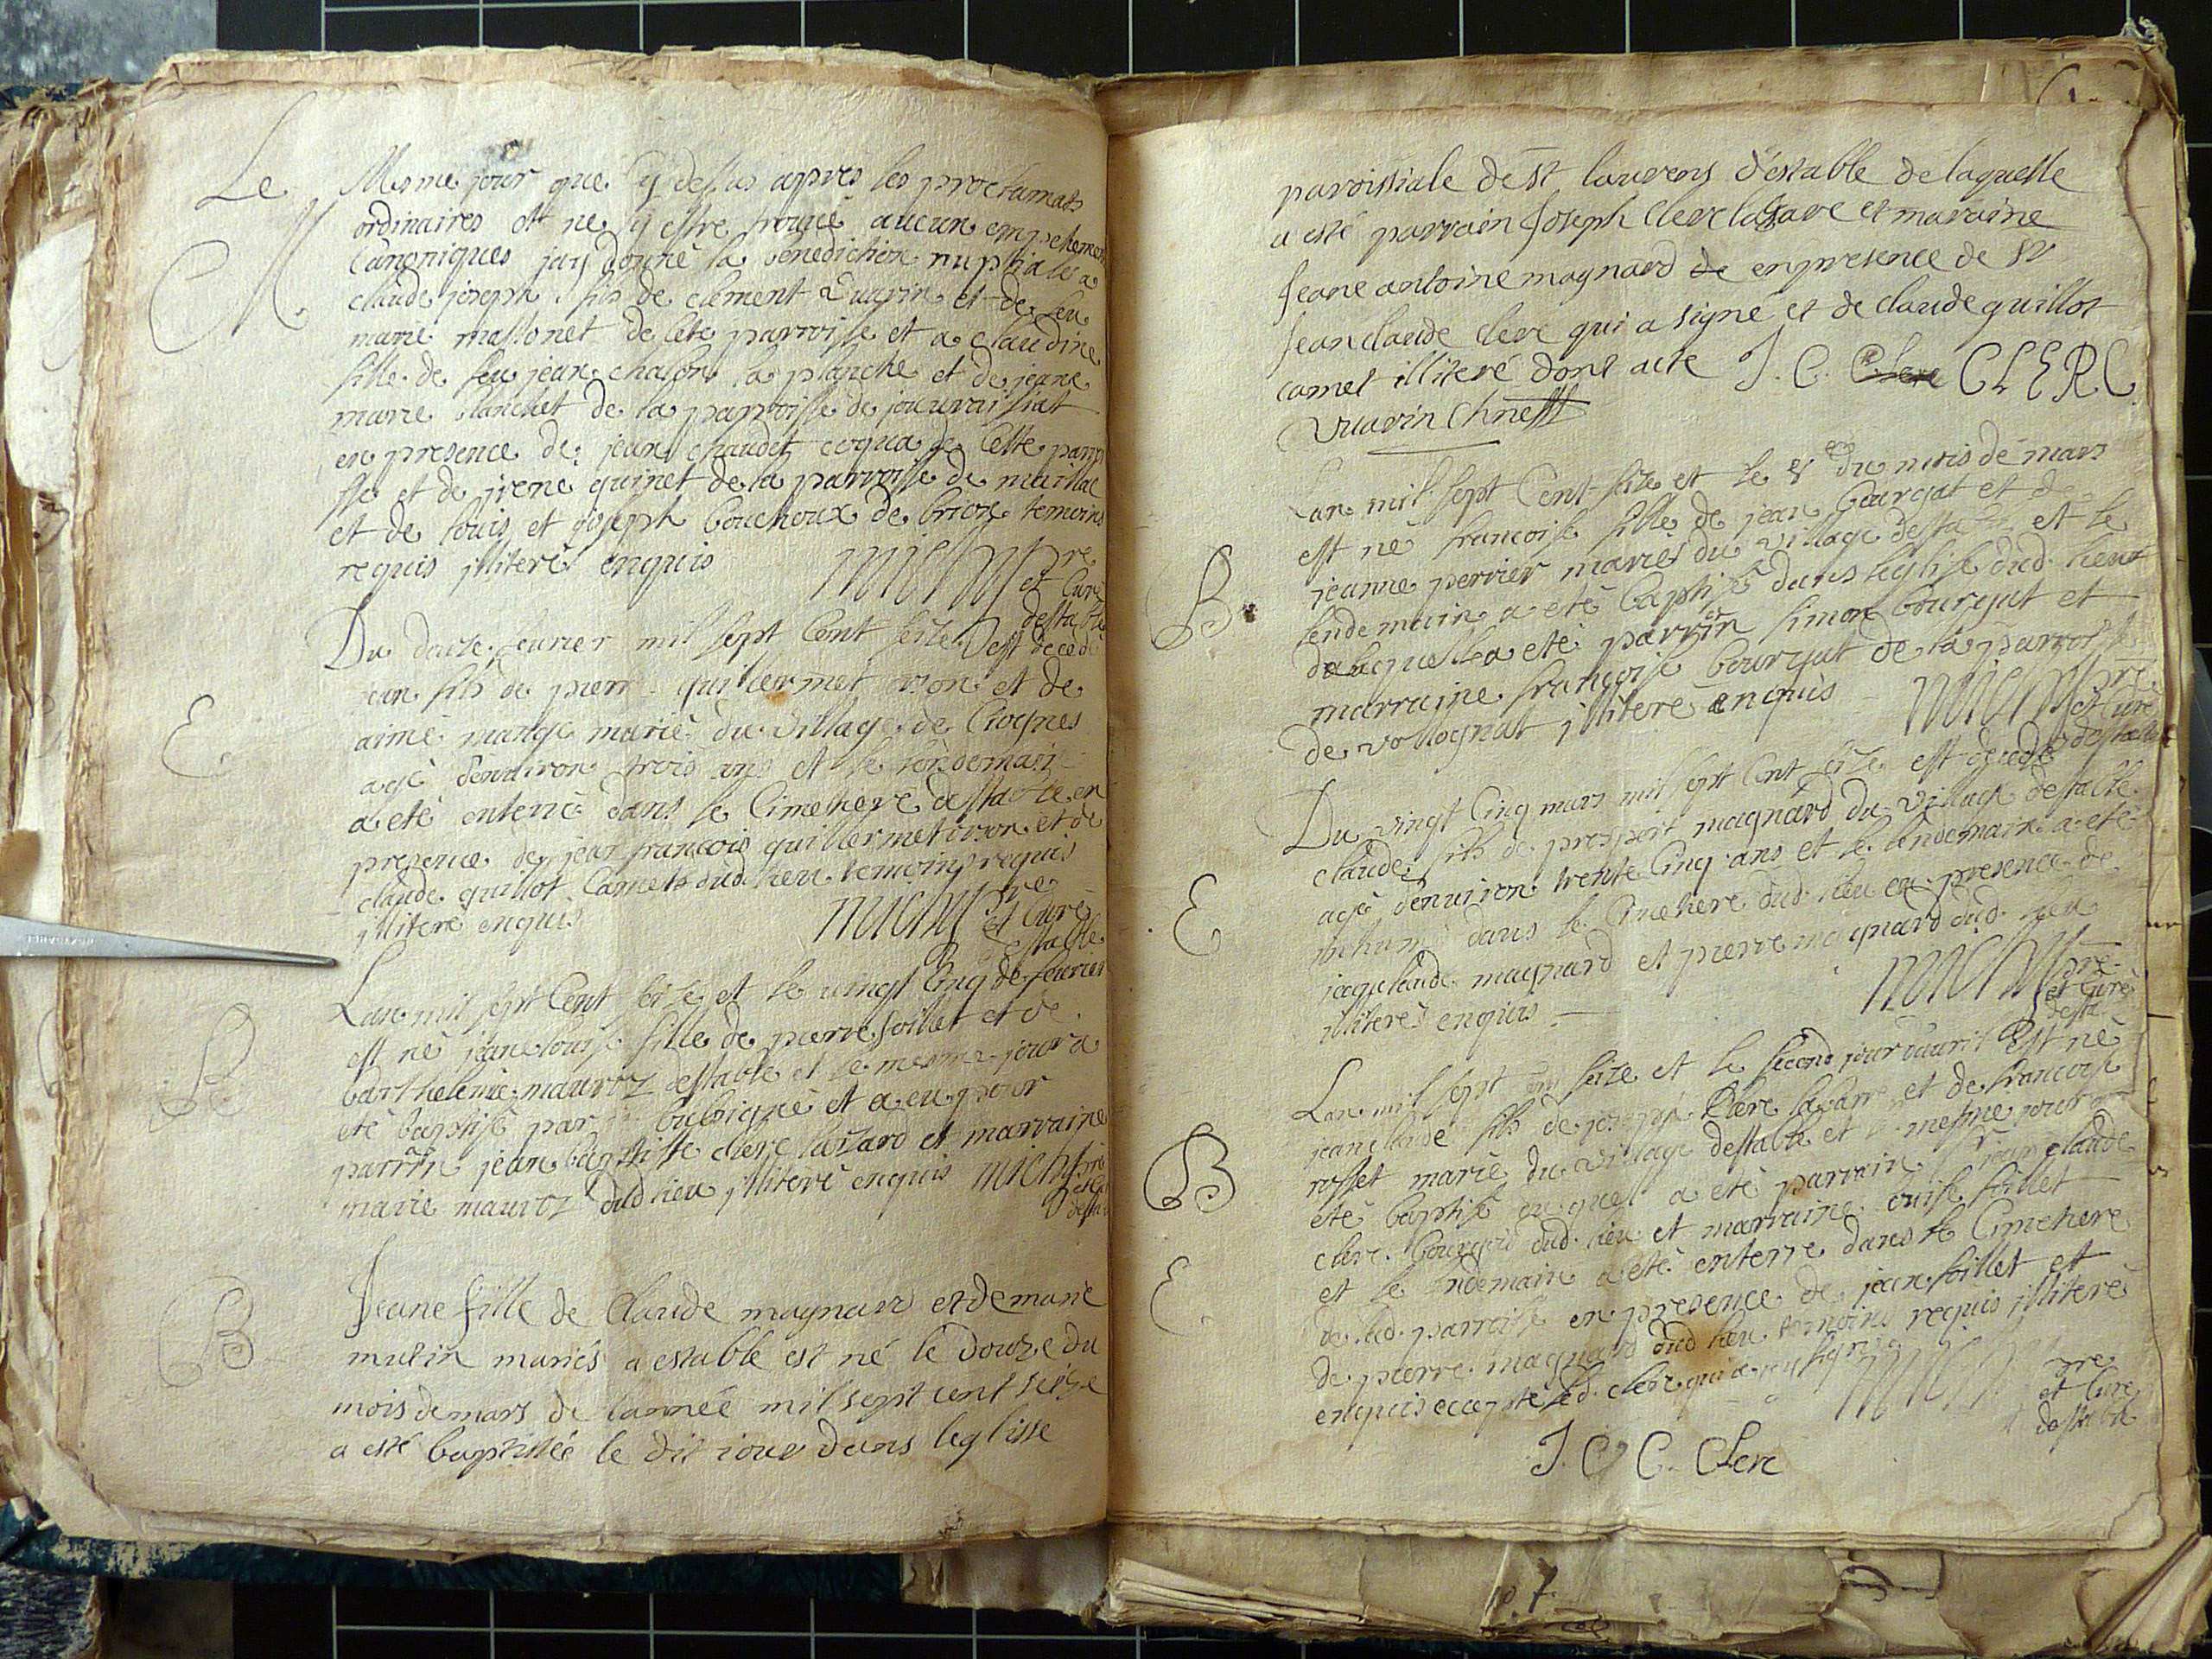 Le Mesme jour que cy dessus appres les proclamaōs
ordinaires et ne sy estre trouvé aucun empechement
Canoniques jay donné la benediction nuptiales a
M
claude joseph fils de clement vuarin et de feu
marie massonet de cete parroisse et a claudine
fille de feu jean chalon la planche et de jeane
marie blanchet de la parroisse de
en presence de jean chaudet coqua de cette parroi
sse et de jrene quinet de la parroisse de maillac
et de louis et joseph bouchoux de brion temoins
requis jlliteré enquis pre
et Curé
destable
Du douze feurier mil sept Cent seize est decedé
jean fils de pierre guillermet et de
E
aimé mange marié du village de Crognes
agé denuiron trois ans et le lendemain
a eté enterré dans le Cimetiere destable en
presence de jean francois guillermet et de
claude guillot Camet dud. lieu temoins requis
jlliteré enquis pre
et Curé
destable
Lan mil sept Cent seize et le vingt Cinq de feurier
est né jeane louise fille de pierre foillet et de
B
barthelemie mauroz destable et le mesme jour a
eté baptisé par et a eu pour
parrin jean baptiste clerc lazard et marraine
marie mauroz dud lieu jlliteré enquis pre
et Curé
destable
B
Jeane fille de Claude magnard et de marie
mutin mariés a estable est né le douze du
mois de mars de lannéé mil sept cent seize
a esté baptiséé le dit iour dans leglisse
paroissiale de st laurens d'estable de laquelle
a esté parrain Joseph clerc lazare et maraine
Jeane antoine magnard de en presence de sr
Jean claude clerc qui a signé et de claude guillot
camet illiteré dont acte J. C. Clerc CLERC
Vuarin
Lan mil sept Cent seize et le du mois de mars
est né francoise fille de jean bourgat et de
jeanne perrier mariés du village destable et le
B
lendemain a eté baptisé dans leglise dud. lieu
de laquelle a eté parrin simon bourgat et
marraine francoise bourgat de la parroisse
de vologniat jlliteré enquis pre
et Curé
destable
Du vingt Cinq mars mil sept Cent seize est decedé
claude fils de prospert magnard du village destable
E
agé denuiron trente Cinq ans et le lendemain a eté
inhumé dans le Cimetiere dud. lieu en presence de
jaqclaude magnard et pierre magnard dud. lieu
jlliterés enquis pre
et Curé
desta
Lan mil sept Cent seize et le second jour dauril Est né
jean claude fils de joseph Clerc lazare et de francoise
B
rosset marié du village destable et le mesme jour a
eté baptisé auquel a eté parrain Sr jean claude
clerc bourgois dud. lieu et marraine louise foillet
E
et le lendemain a eté enterré dans le Cimetiere
de lad. parroisse en presence de jean foillet et
de pierre magnard dud lieu temoins requis jlliteré
enquis excepté led. clerc qui a signé
pre
et Curé
destable
J C C. Clerc